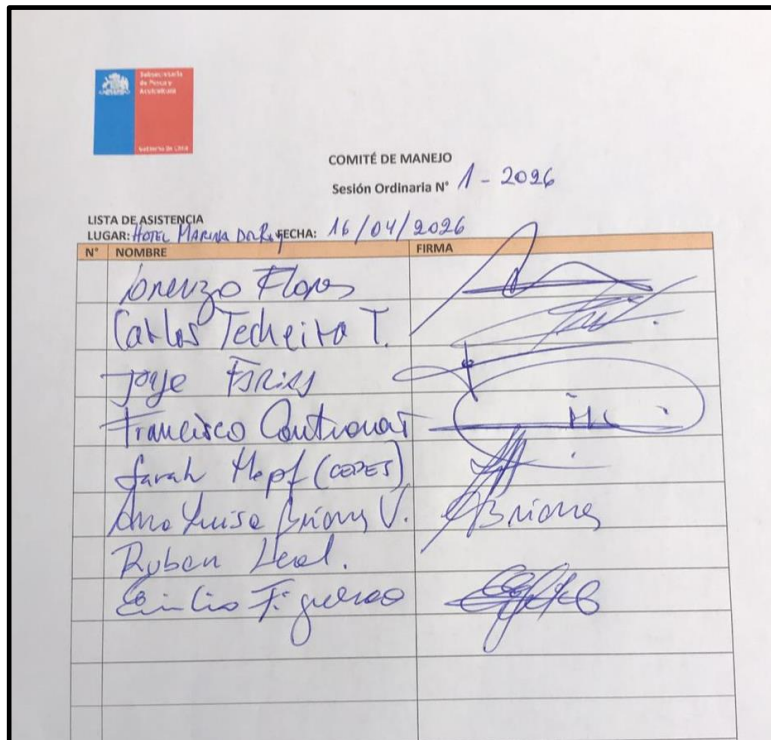 Subsecretaría
de Pesca y
Acuicultura
Gobierno de Chile
COMITÉ DE MANEJO
Sesión Ordinaria N° 1 - 2026
LISTA DE ASISTENCIA
LUGAR: HOTEL MARINA FECHA: 16/04/2026
N° NOMBRE FIRMA
Lorenzo Flores
Carlos Techeira T.
Jorge FARIAS
Francisco Contreras
Sarah Hopf (CEPES)
Ana Luisa Briones V. ABriones
Ruben Leal.
Emilio Figueroa